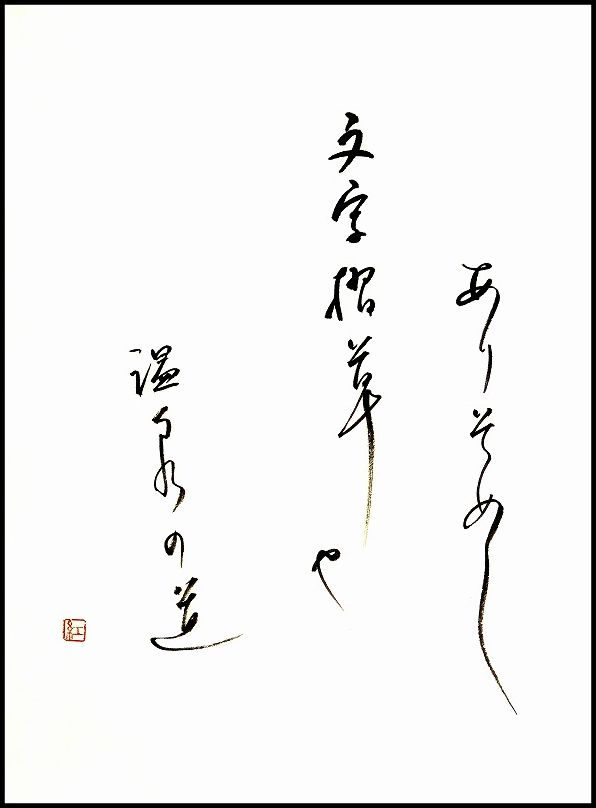 ありそめし
文字摺草や
温泉の道
紅